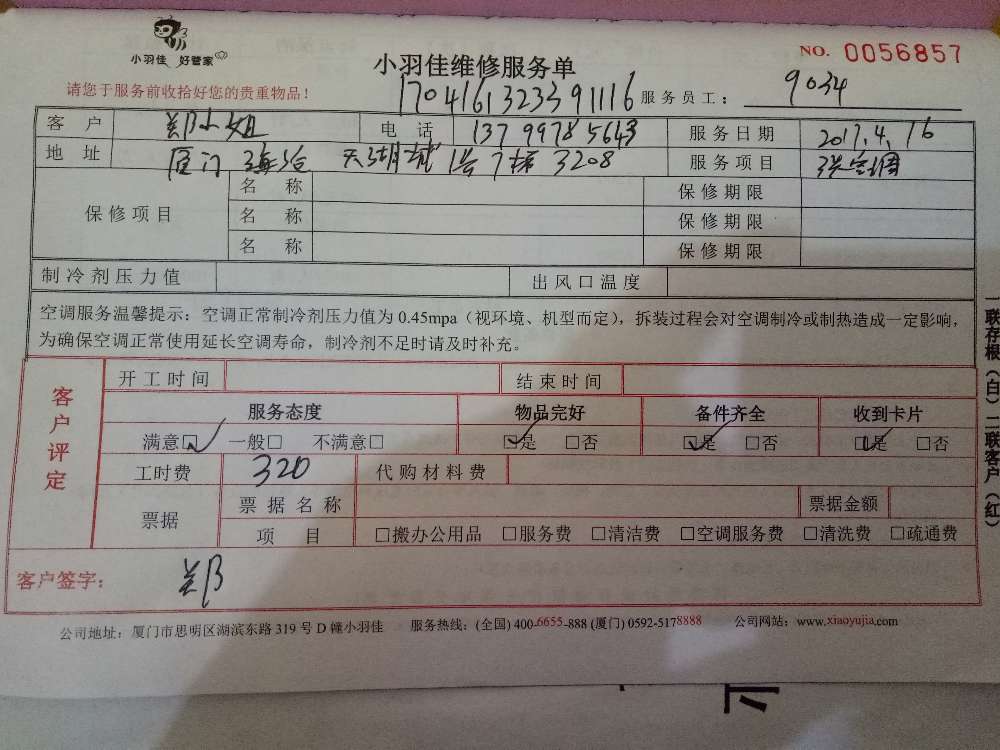 小羽佳 好管家
小羽佳维修服务单
NO. 0056857
请您于服务前收拾好您的贵重物品!
1704161323391116 服务员工: 9034
客户 郑小姐 电话 13799785643 服务日期 2017.4.16
地址 厦门 海沧 天湖城 1号7栋 3208 服务项目 洗空调
保修项目 名称 保修期限
名称 保修期限
名称 保修期限
制冷剂压力值 出风口温度
空调服务温馨提示:空调正常制冷剂压力值为 0.45mpa(视环境、机型而定),拆装过程会对空调制冷或制热造成一定影响,
为确保空调正常使用延长空调寿命,制冷剂不足时请及时补充。
客户评定
开工时间 结束时间
服务态度 物品完好 备件齐全 收到卡片
满意☑ 一般□ 不满意□ ☑是 □否 ☑是 □否 ☑是 □否
工时费 320 代购材料费
票据 票据名称 票据金额
项目 □搬办公用品 □服务费 □清洁费 □空调服务费 □清洗费 □疏通费
客户签字: 郑
公司地址:厦门市思明区湖滨东路 319 号 D 幢小羽佳 服务热线:(全国) 400-6655-888 (厦门) 0592-5178888 公司网站:www.xiaoyujia.com
一联存根(白)二联客户(红)